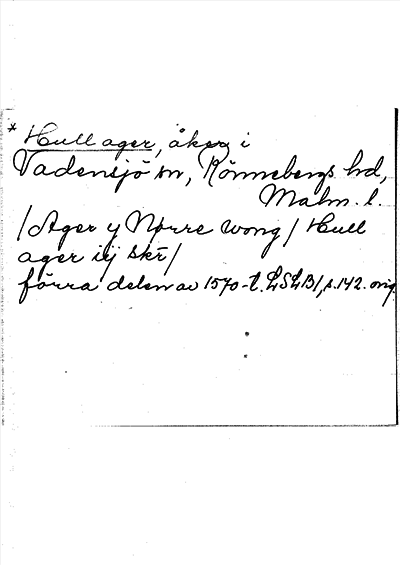 * Hull ager, åker i
Vadensjö sn, Rönnebergs hd,
Malm. l.
/Ager y Nørre wong/ Hull
ager iij skr/
förra delen av 1570-t. LSLB1, s. 142. orig.